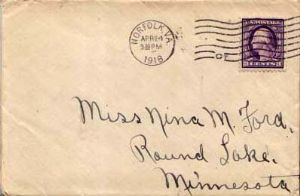 NORFOLK, VA.
APR 24
3 30 PM
1918
U.S. POSTAGE
3 CENTS 3
Miss Nina M. Ford,
Round Lake.
Minnesota